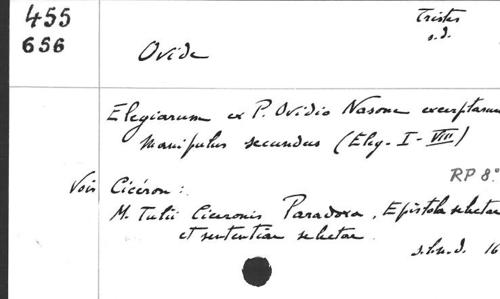 455
656
Tristes
s.d.
Ovide
Elegiarum ex P. Ovidio Nasone excerptarum
Manipulus secundus (Eleg. I - VIII)
RP 8°
Voir Cicéron :
M. Tulii Ciceronis Paradoxa, Epistola selectae
et sententiae selectae.
s.l.n.d. 16